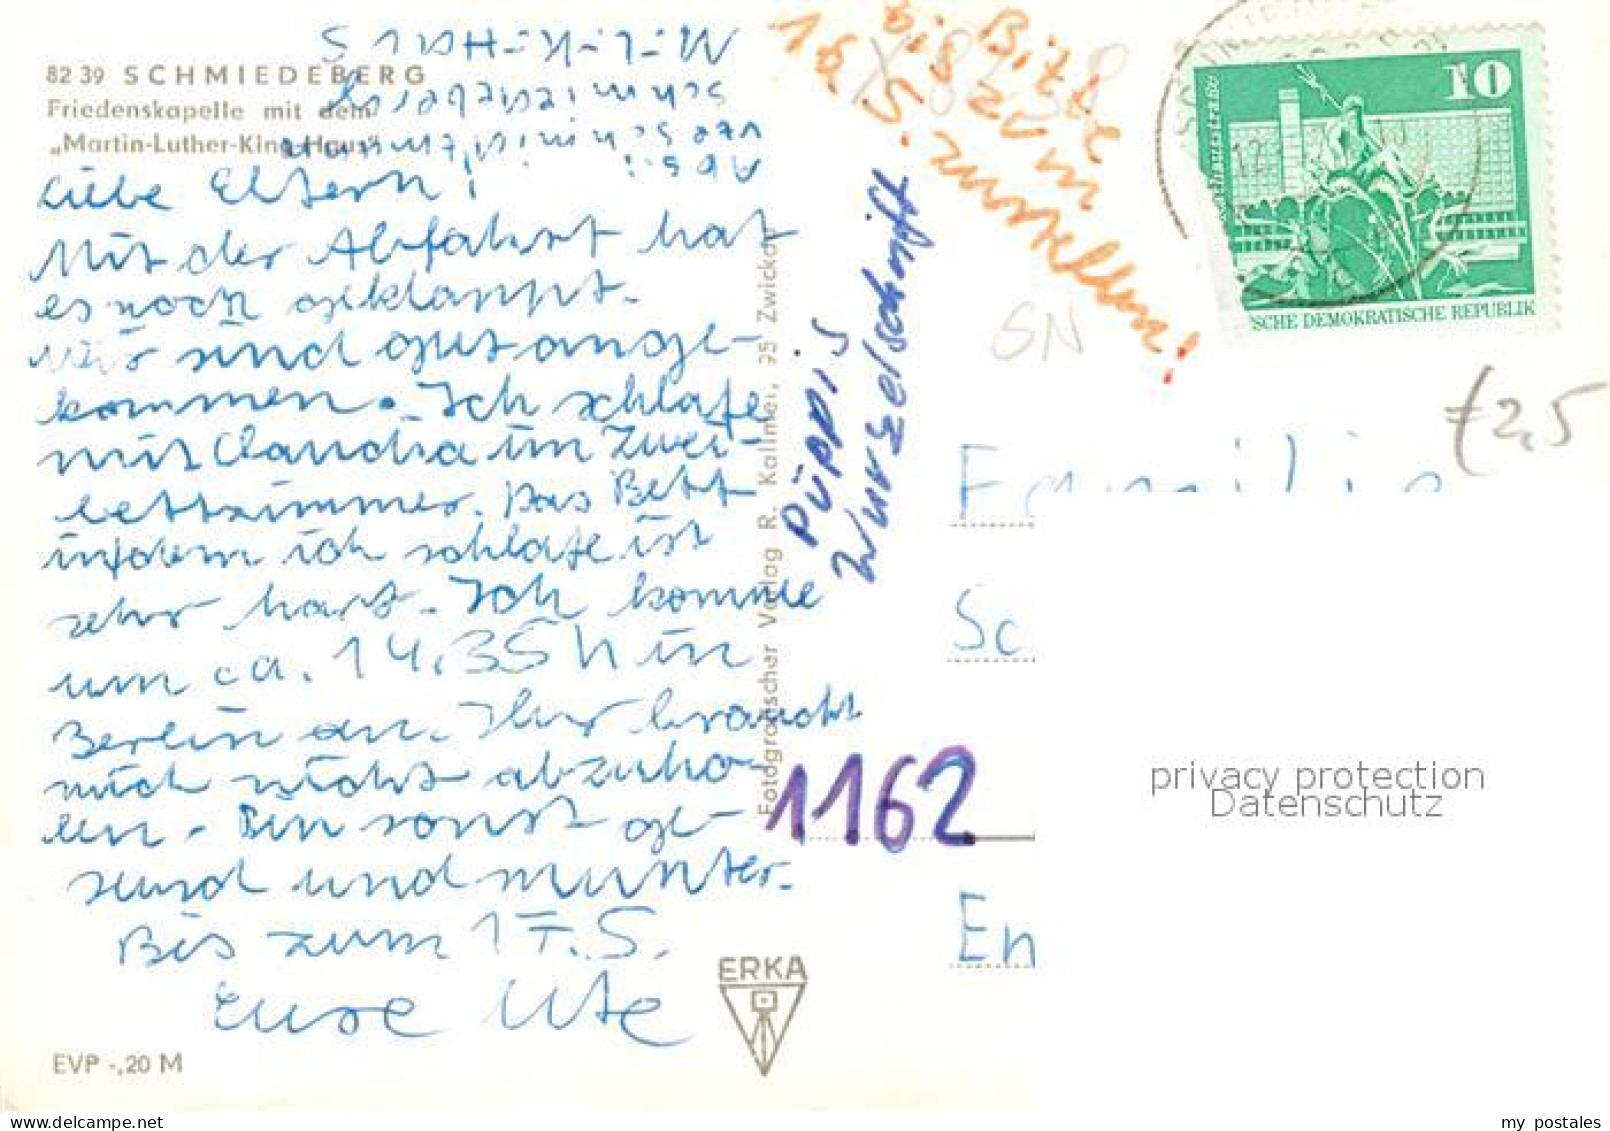 82 39 SCHMIEDEBERG
Friedenskapelle mit dem
„Martin-Luther-King-Haus"
Abs.:
Ute Schmist
Schmiedeberg
M.-L.-K.-Haus
Liebe Eltern!
Mit der Abfahrt hat
es noch geklappt.
Wir sind gut ange-
kommen. Ich schlafe
mit Claudia im Zwei-
bettzimmer. Das Bett
in dem ich schlafe ist
sehr hart. Ich komme
um ca. 14.35 h in
Berlin an. Ihr braucht
mich nicht abzuho-
len. Bin sonst ge-
sund und munter.
Bis zum 17.5.
Eure Ute
EVP -,20 M
Fotografischer Verlag R. Kallmer, 95 Zwickau
ERKA
Püppis
Wurzelschrift
Bitte
bis zum
16.5. zustellen!
X 8238
SN
1162
10
SCHE DEMOKRATISCHE REPUBLIK
€2,5
Familie
Sc
En
privacy protection
Datenschutz
my postales